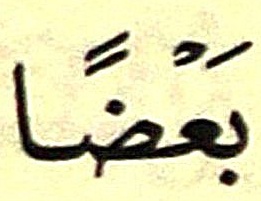 بَعْضًا